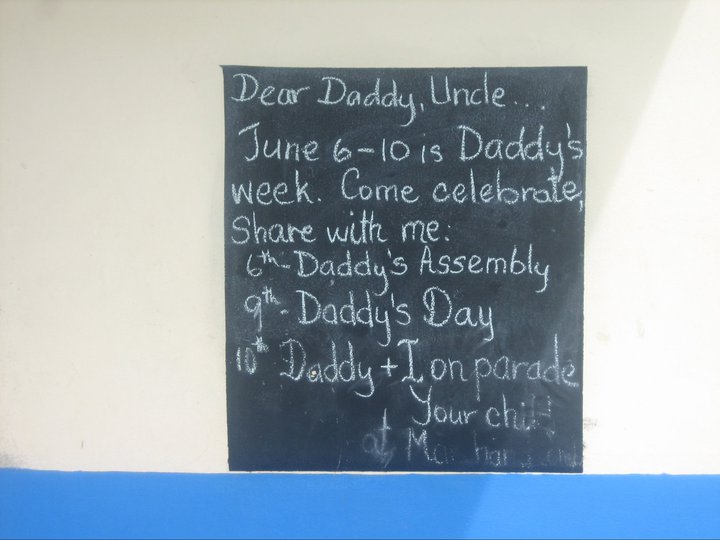 Dear Daddy, Uncle...
June 6-10 is Daddy's
week. Come celebrate,
Share with me:
6th - Daddy's Assembly
9th - Daddy's Day
10th Daddy + I on parade
Your child
at